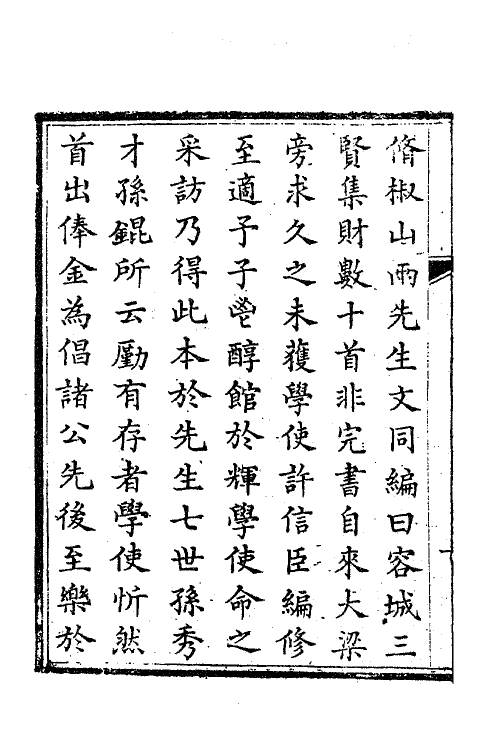 脩椒山兩先生文同編曰容城三
賢集財數十首非完書自來大梁
旁求久之未獲學使許信臣編修
至適予子鬯醇館於輝學使命之
采訪乃得此本於先生七世孫秀
才孫錕所云勵有存者學使忻然
首出俸金為倡諸公先後至樂於